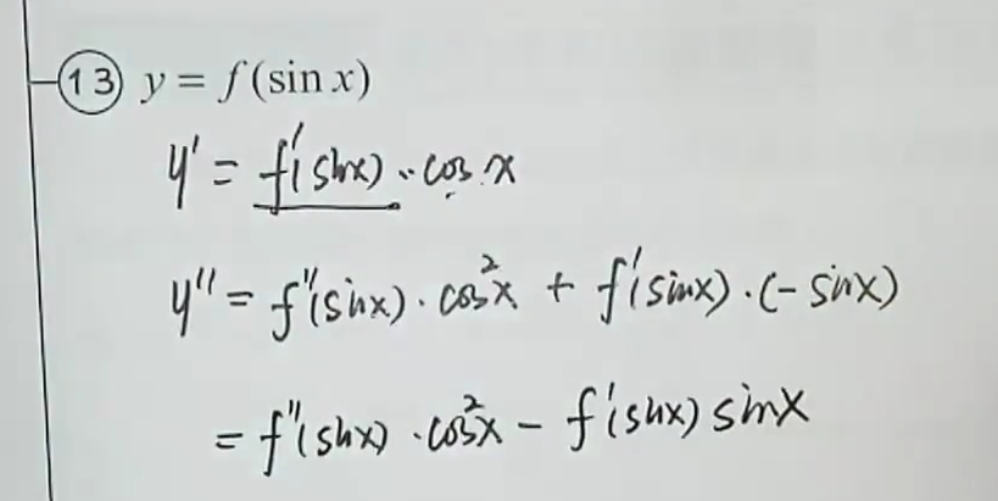 (13) y = f(sin x)
y' = f'(sinx) · cos x
y'' = f''(sinx) · cos²x + f'(sinx) · (- sinx)
= f''(sinx) · cos²x - f'(sinx) sinx